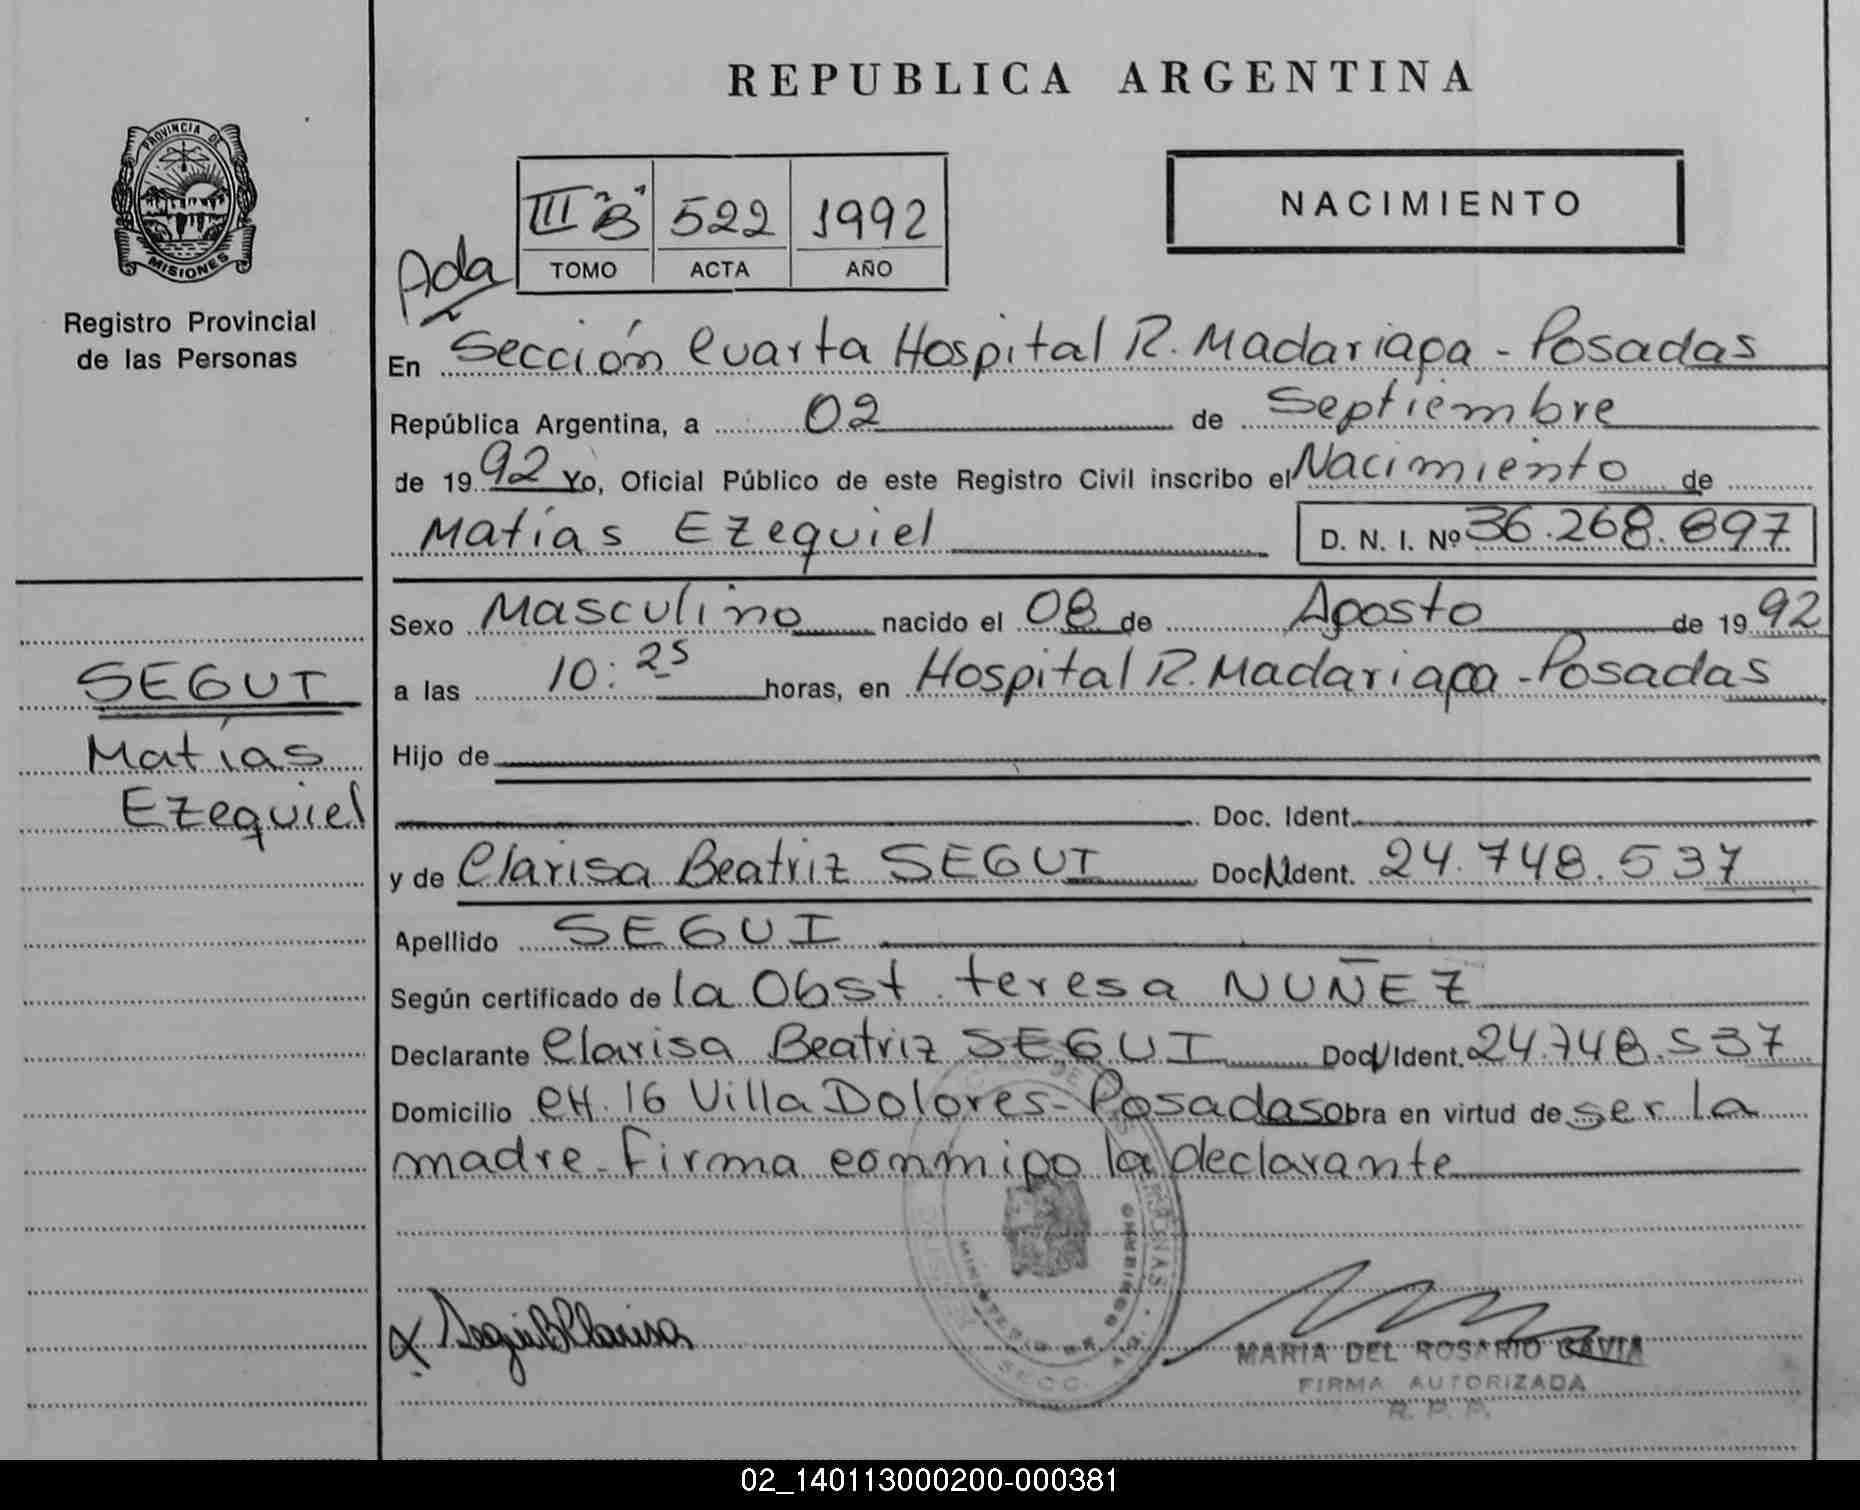 REPUBLICA ARGENTINA
PROVINCIA DE
MISIONES
Registro Provincial
de las Personas
III "B" 522 1992
TOMO ACTA AÑO
NACIMIENTO
Ada
En Sección Cuarta Hospital R. Madariaga - Posadas
República Argentina, a 02 de Septiembre
de 1992 Yo, Oficial Público de este Registro Civil inscribo el Nacimiento de
Matías Ezequiel D. N. I. Nº 36.268.697
Sexo Masculino nacido el 08 de Agosto de 1992
a las 10:25 horas, en Hospital R. Madariaga - Posadas
Hijo de
Doc. Ident.
y de Clarisa Beatriz SEGUI Doc. Ident. 24.748.537
Apellido SEGUI
Según certificado de la Obst. teresa NUÑEZ
Declarante Clarisa Beatriz SEGUI Doc. Ident. 24.748.537
Domicilio CH. 16 Villa Dolores - Posadas obra en virtud de ser la
madre - Firma conmigo la declarante
SEGUI
Matías
Ezequiel
Segui B Clarisa
MARIA DEL ROSARIO GAVIA
FIRMA AUTORIZADA
R. P. P.
02_140113000200-000381